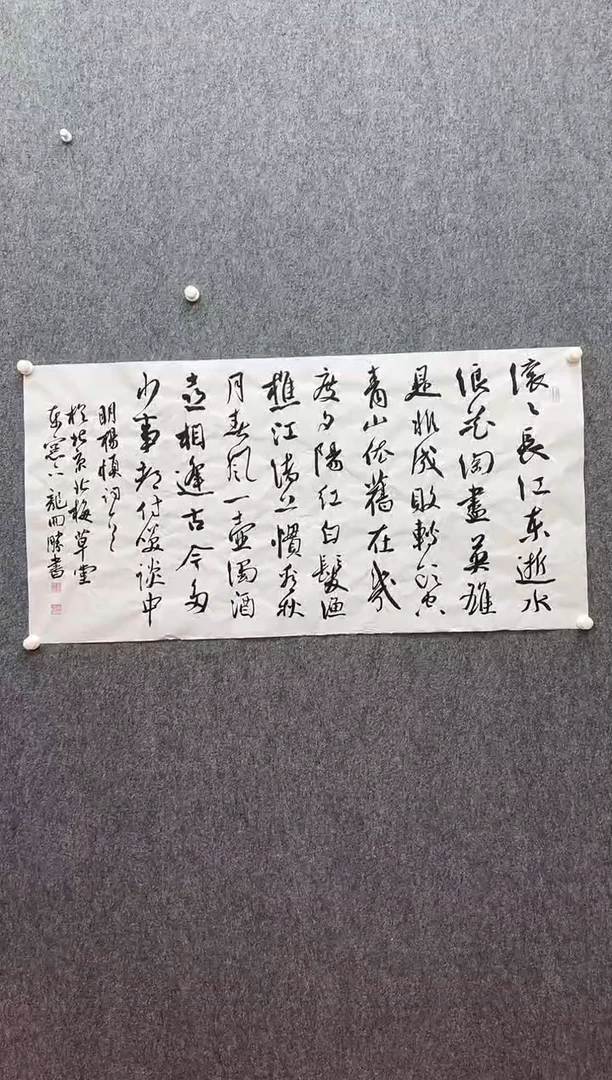 滚〻長江东逝水
浪花淘盡英雄
是非成敗轉頭空
青山依舊在幾
度夕陽红白髮渔
樵江渚上慣看秋
月春风一壶濁酒
喜相逢古今多
少事都付笑談中
明楊慎词
於北京北梅草堂
东窓下龍四勝書